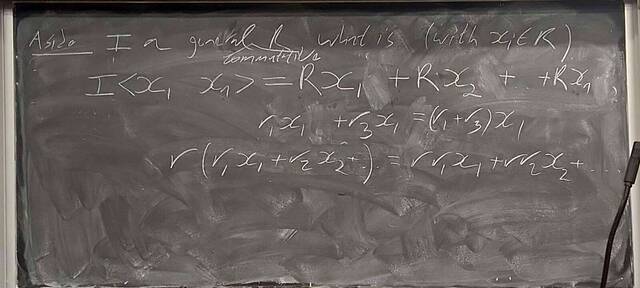 Aside I a general R what is (with x_i ∈ R)
commutative
I<x_1 x_n> = Rx_1 + Rx_2 + .. + Rx_n,
r_1x_1 + r_3x_1 = (r_1 + r_3)x_1
r(r_1x_1 + r_2x_2 + ..) = rr_1x_1 + rr_2x_2 + ...